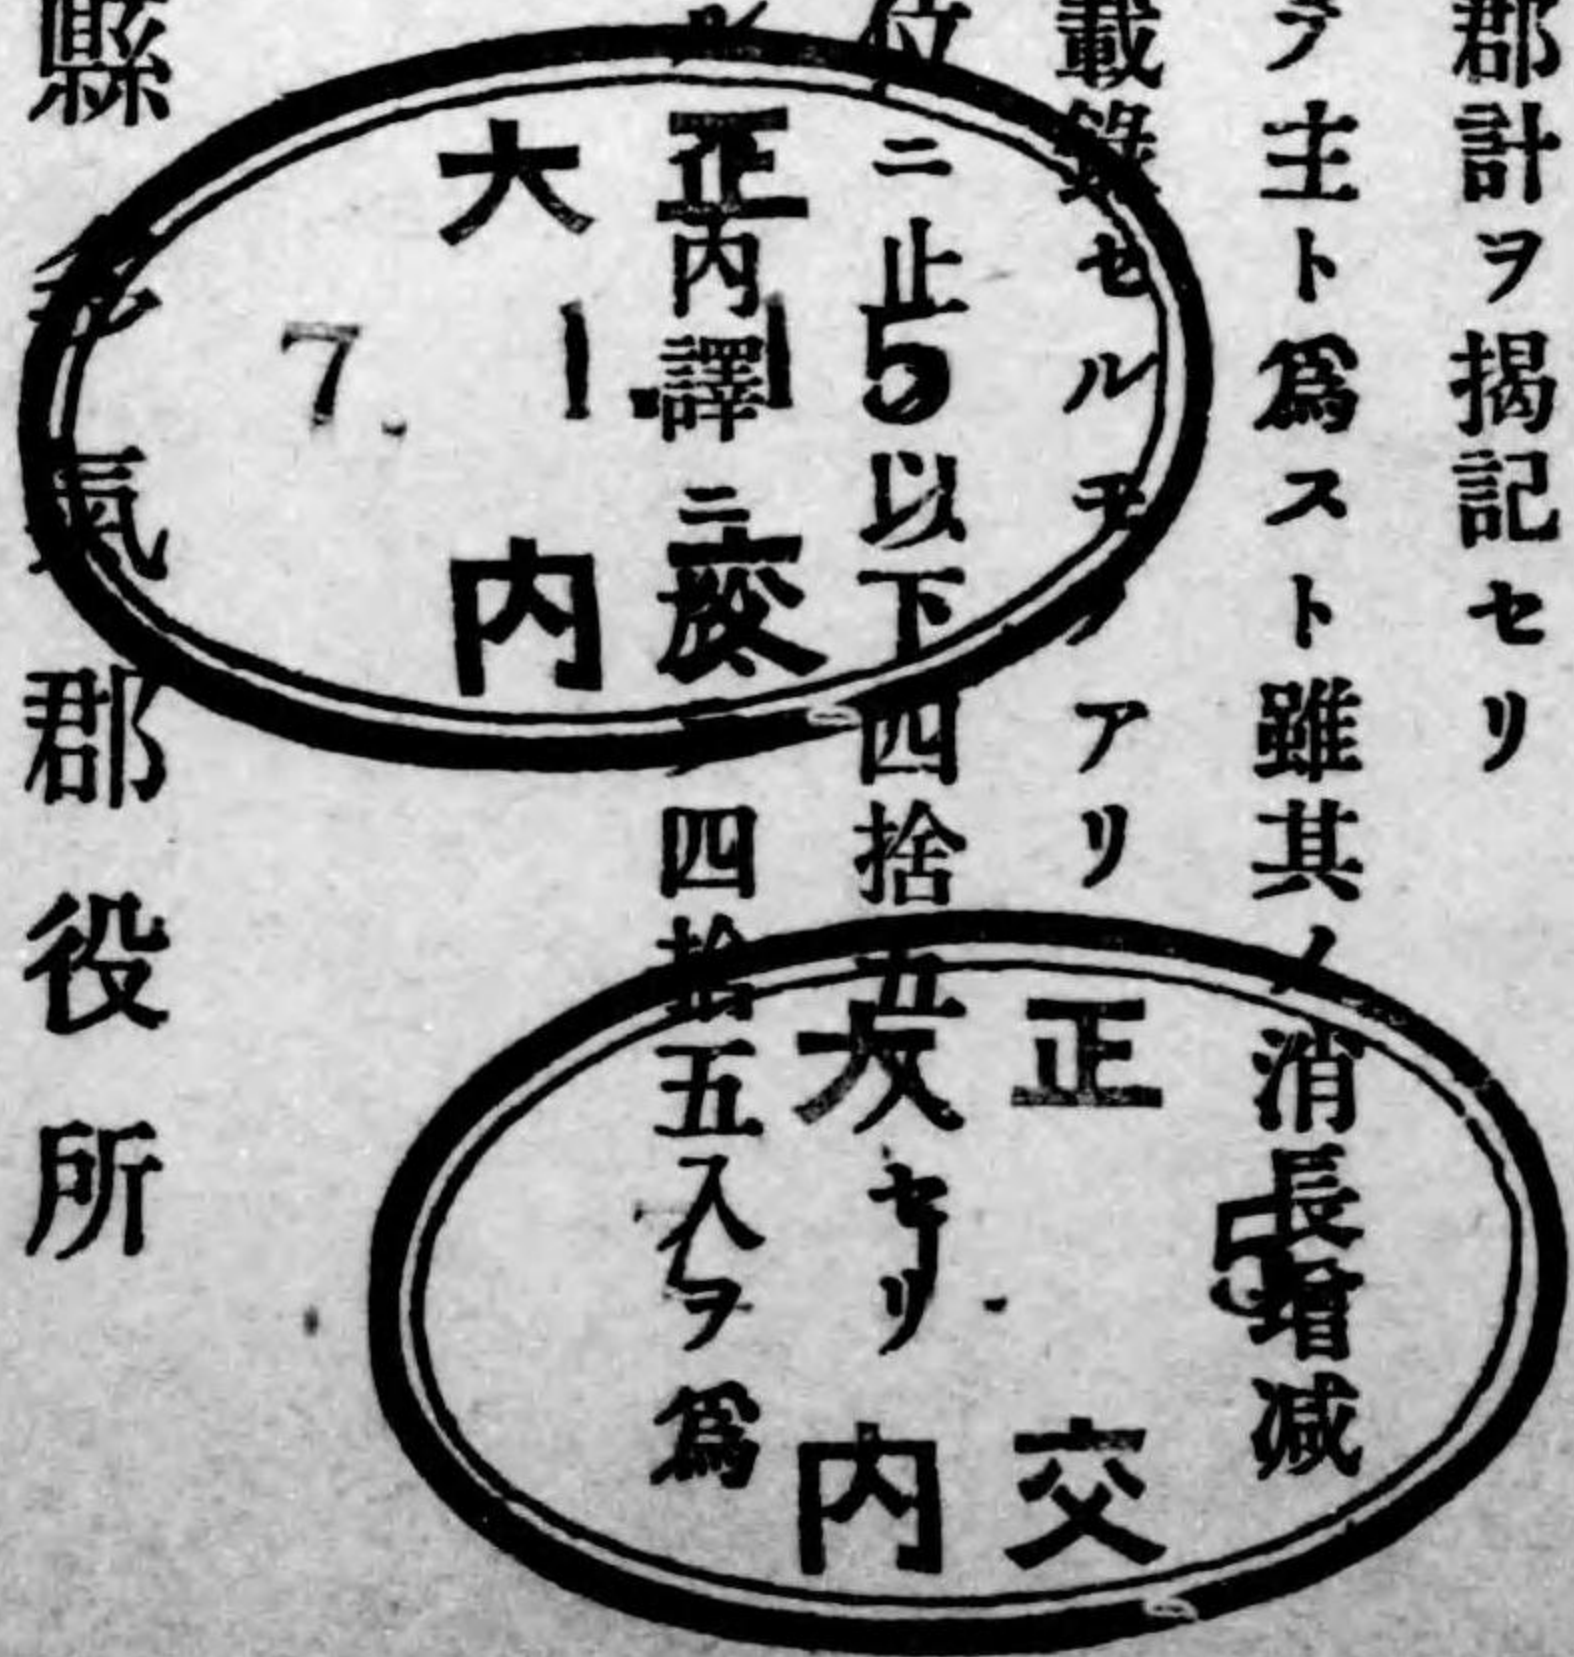 郡計ヲ揭記セリ
ヲ主ト爲スト雖其ノ消長增減
載錄セルモノアリ
位ニ止以下四捨五入セリ
內譯ニ於 四捨五入ヲ爲
縣多氣郡役所
大正
7. 1.15
內交
大正
5
內交